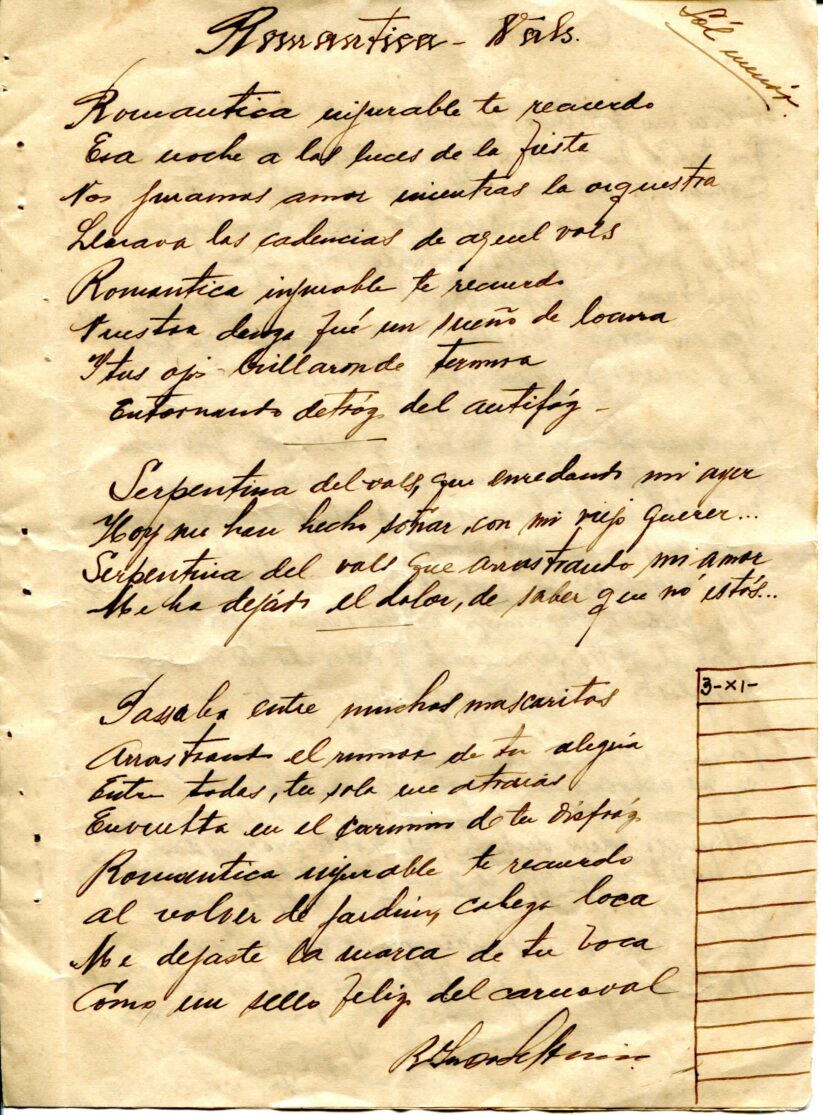 Romantica - Vals.
Sól menór.
Romantica injurable te recuerdo
Esa noche a las luces de la fiesta
Nos juramos amor mientras la orquestra
Llevava las cadencias de aquel vals
Romantica injurable te recuerdo
Nuestra danza fué un sueño de locura
Y tus ojos brillaron de ternura
Entornando detráz del antifáz -
Serpentina del vals, que enredando mi ayer
Hoy me han hecho soñar, con mi viejo querer...
Serpentina del vals que arrastrando mi amor
Me ha dejádo el dolor, de saber que nó estás...
3-XI-
Passaba entre muchas mascaritas
Arrastrando el rumor de tu alegria
Entre todas, tu sola me atraias
Envuelta en el carmin de tu disfráz
Romantica injurable te recuerdo
al volver de jardin, cabeza loca
Me dejaste la marca de tu boca
Como un sello feliz del carnaval